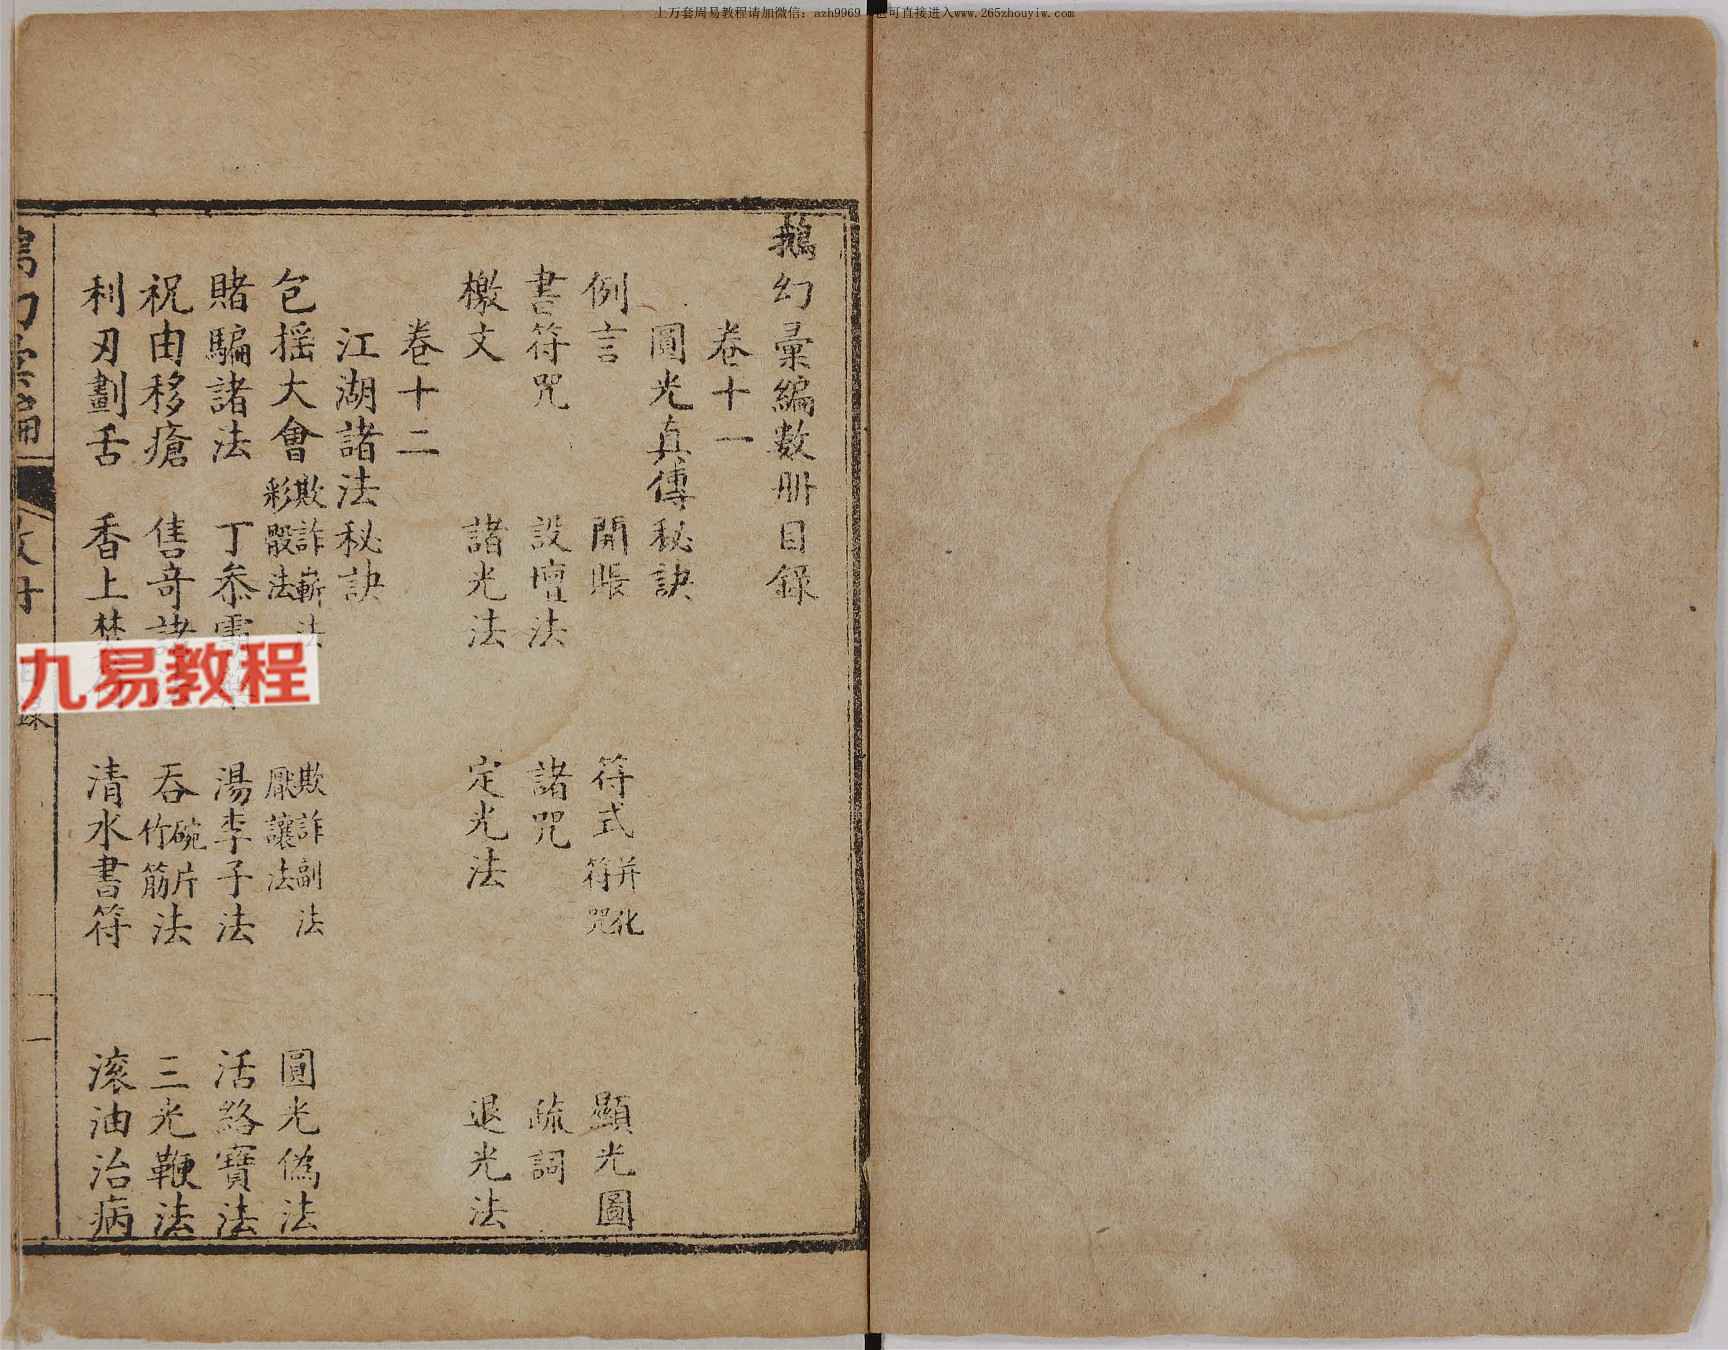 上万套周易教程请加微信：azh9969 也可直接进入www.265zhouyiw.com
鵝幻彙編数册目錄
卷十一
圓光真傳秘訣
例言 開賬 符式 并化符咒 顯光圖
書符咒 設壇法 諸咒 疏詞
檄文 諸光法 定光法 退光法
卷十二
江湖諸法秘訣
包摇大會 欺詐嶄法 彩骰法 欺詐副法 厭讓法 圓光偽法
賭騙諸法 丁叅 湯李子法 活絡寶法
祝由移瘡 售奇諸 吞碗片竹筋法 三光鞭法
利刃劃舌 香上 清水書符 滚油治病
九易教程
一